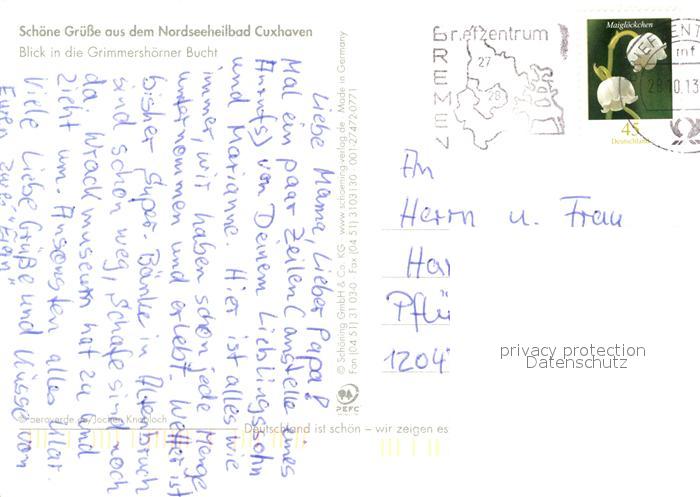 Schöne Grüße aus dem Nordseeheilbad Cuxhaven
Blick in die Grimmershörner Bucht
Briefzentrum
BREMEN
27
28
28.10.13
Maiglöckchen
45
Deutschland
Liebe Mama, Lieber Papa!
Mal ein paar Zeilen (anstelle eines
Anruf(s) von Deinem Lieblingssohn
und Marianne. Hier ist alles wie
immer, wir haben schon jede Menge
unternommen und erlebt. Wetter ist
bisher super. Bänke in Altenbruch
sind schon weg, Schafe sind noch
da. Wrackmuseum hat zu und
zieht um. Ansonsten alles klar.
Viele Liebe Grüße und Küsse von
Euren zwei
© Schöning GmbH & Co. KG · www.schoening-verlag.de · Made in Germany
Fon (04 51) 31 03-0 · Fax (04 51) 3103130 · 001-27472-0771
PEFC
An
Herrn u. Frau
Har
Pflü
1204
privacy protection
Datenschutz
© aeroverde.de/Jochen Knobloch
Deutschland ist schön – wir zeigen es